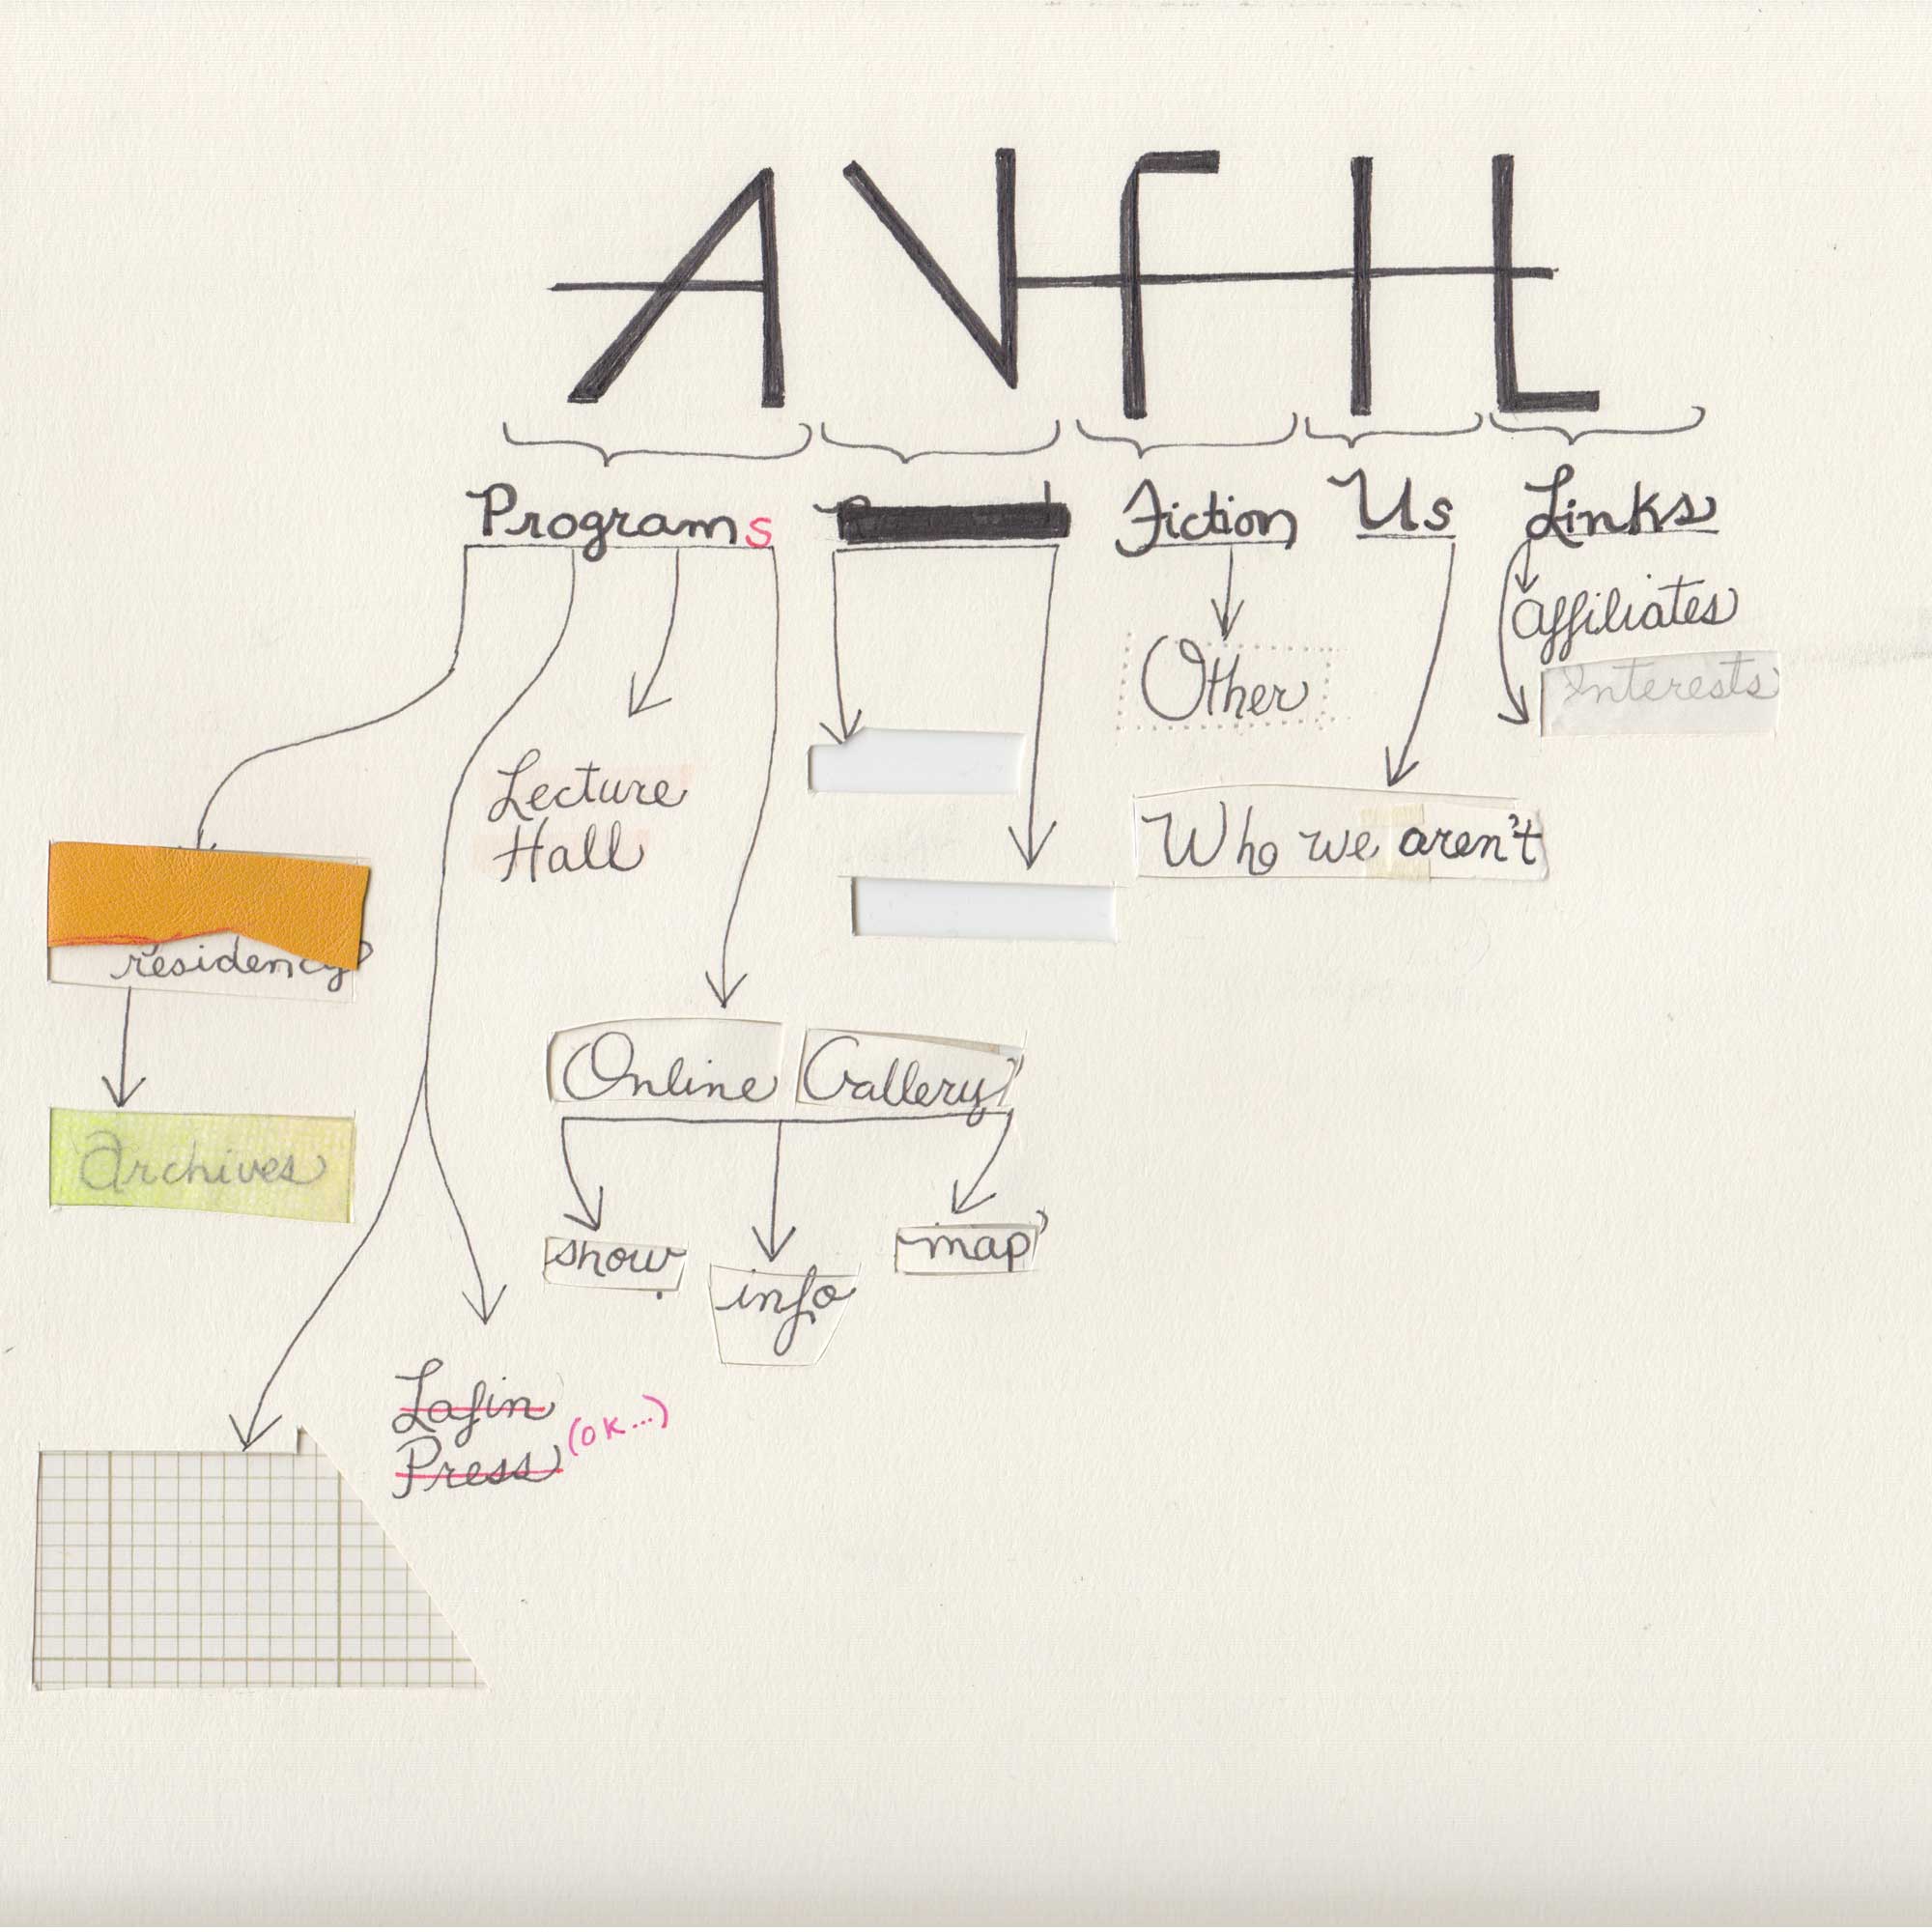 Programs
Fiction
Us
Links
affiliates
Interests
Other
Lecture
Hall
Who we aren't
residency
Archives
Online Gallery
show
info
map
Lafin
Press
(OK...)